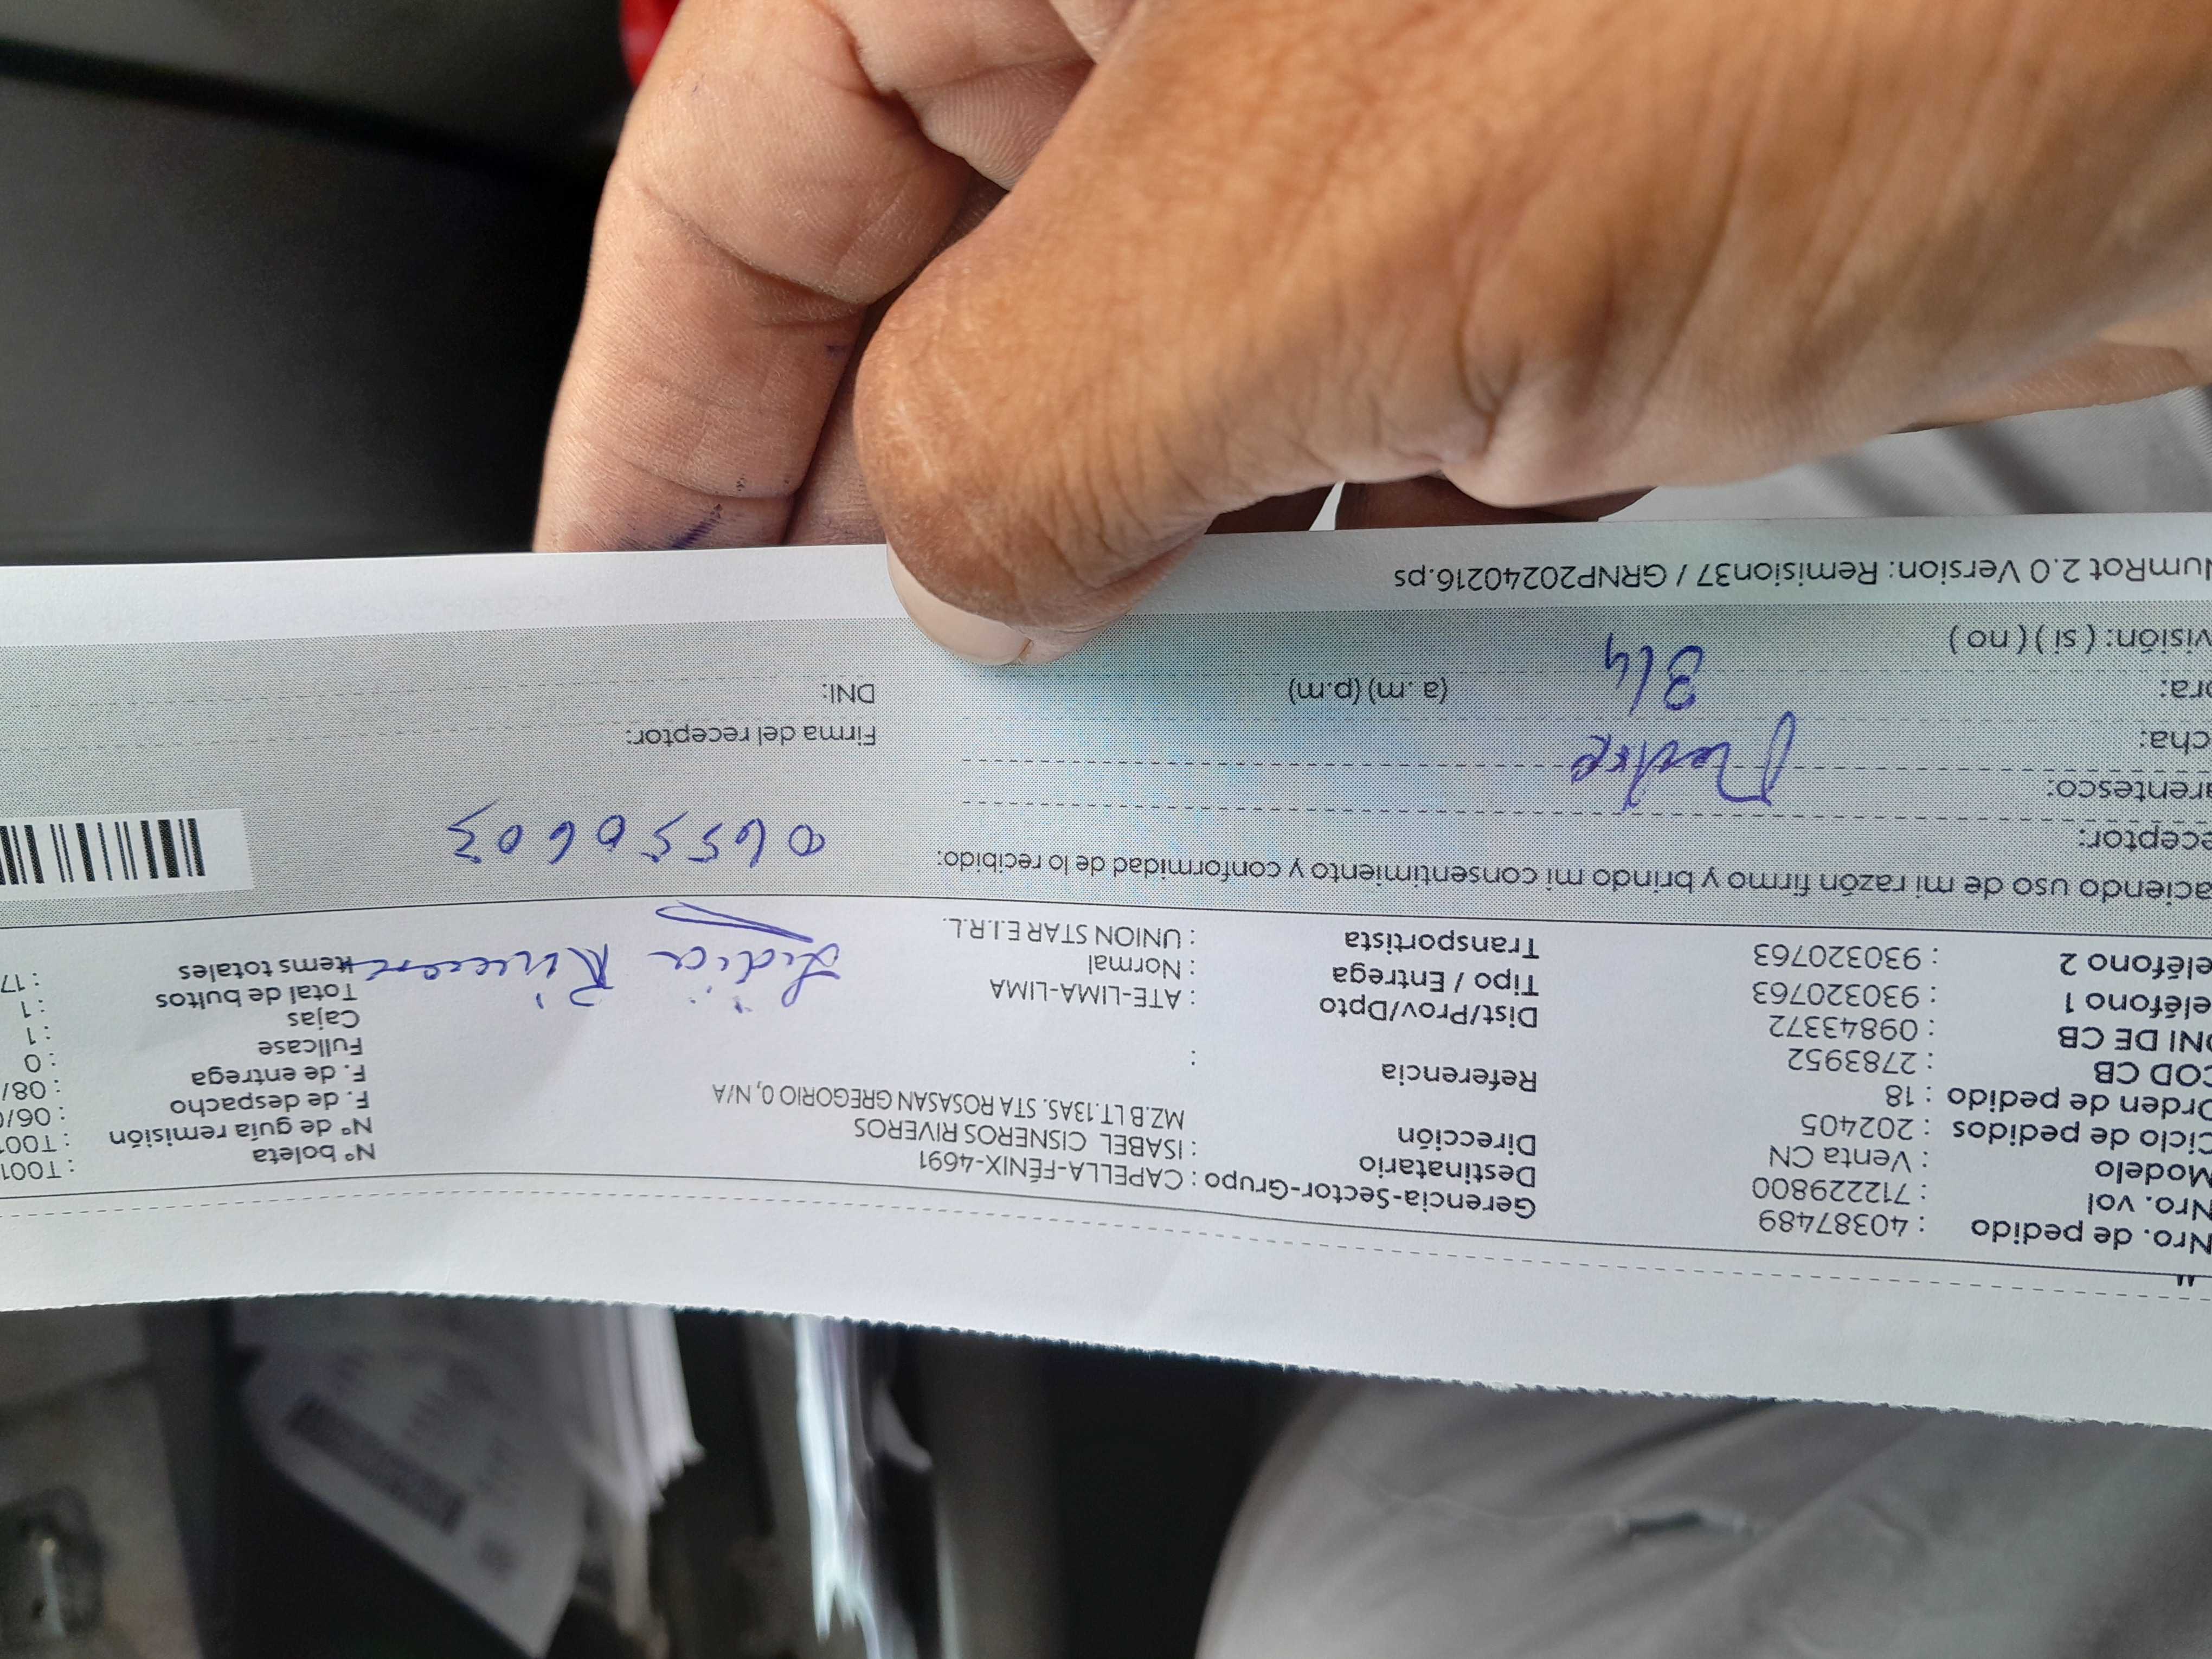 Nro. de pedido : 40387489
Nro. vol : 712229800
Modelo : Venta CN
Ciclo de pedidos : 202405
Orden de pedido : 18
COD CB : 2783952
DNI DE CB : 09843372
eléfono 1 : 930320763
eléfono 2 : 930320763
Gerencia-Sector-Grupo : CAPELLA-FÉNIX-4691
Destinatario : ISABEL CISNEROS RIVEROS
Dirección MZ.B LT.13AS. STA ROSASAN GREGORIO 0, N/A
Referencia :
Dist/Prov/Dpto : ATE-LIMA-LIMA
Tipo / Entrega : Normal
Transportista : UNION STAR E.I.R.L.
N° boleta : T001
N° de guía remisión : T001
F. de despacho : 06/0
F. de entrega : 08/
Fullcase : 0
Cajas : 1
Total de bultos : 1
Items totales : 17
Lidia
aciendo uso de mi razón firmo y brindo mi consentimiento y conformidad de lo recibido:
06550603
eceptor:
arentesco: Madre
cha:
ora: 314 (a .m) (p.m)
visión: ( si ) ( no )
Firma del receptor:
DNI:
NumRot 2.0 Version: Remision37 / GRNP20240216.ps